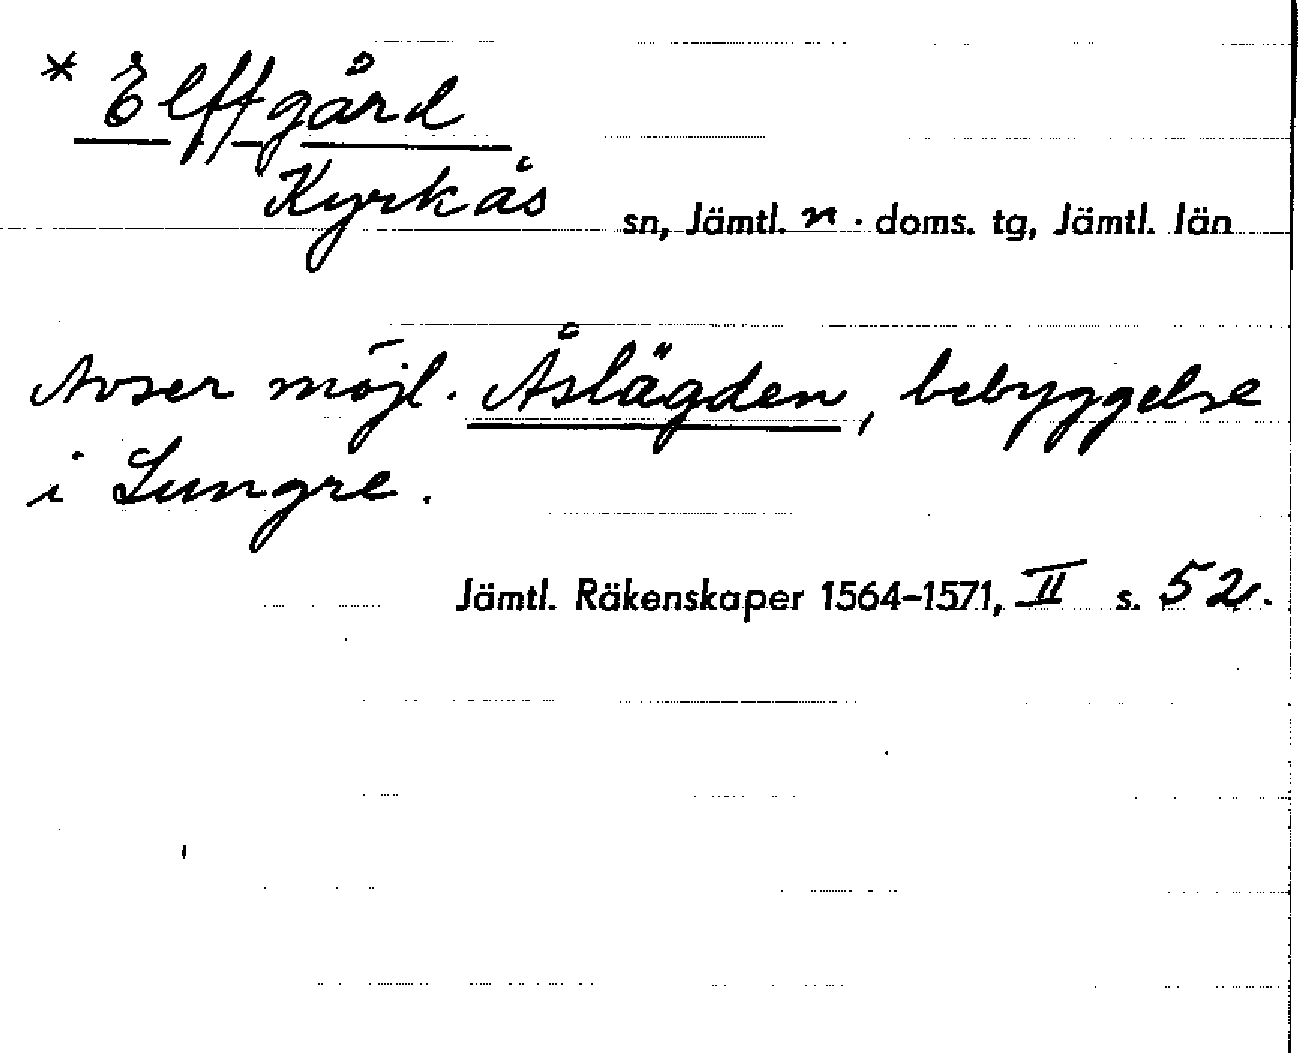 * Elffgård
Kyrkås sn, Jämtl. n. doms. tg, Jämtl. län
Avser möjl. Åslägden, bebyggelse
i Lungre.
Jämtl. Räkenskaper 1564-1571, II s. 52.